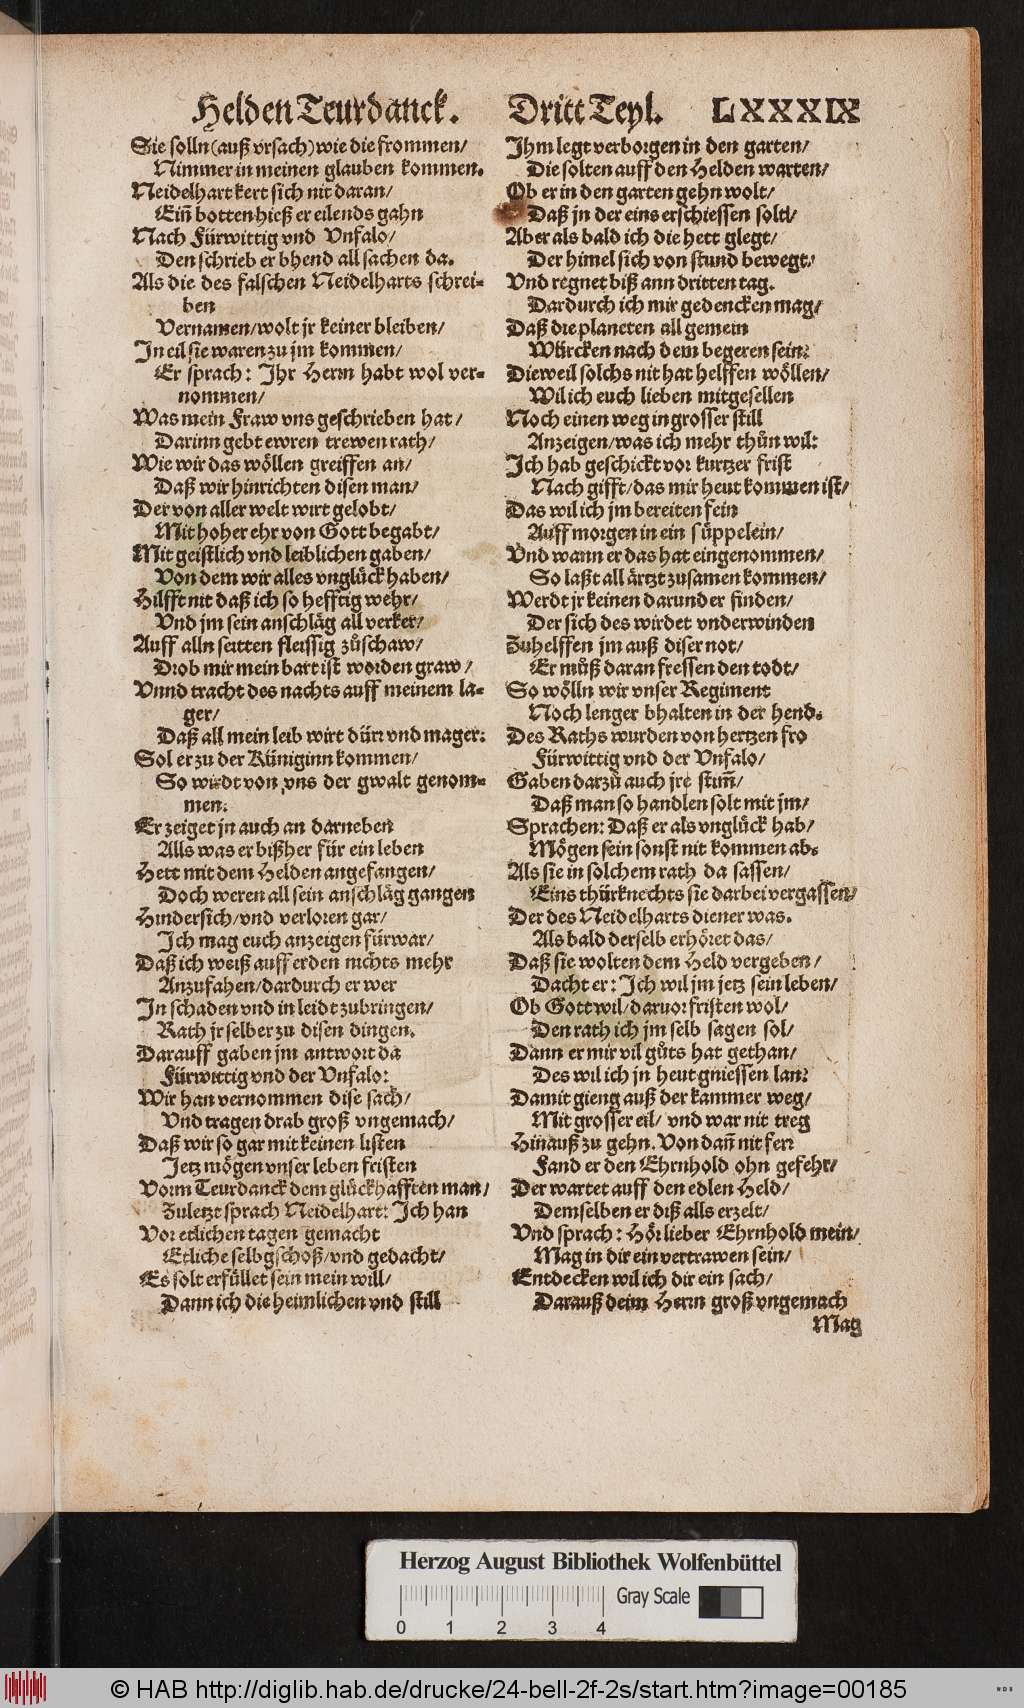 Helden Teurdanck. Dritt Teyl. LXXXIX
Sie solln (auß vrsach) wie die frommen/
Nimmer in meinen glauben kommen.
Neidelhart kert sich nit daran/
Ein̄ botten hieß er eilends gahn
Nach Fürwittig vnd Vnfalo/
Den schrieb er bhend all sachen da.
Als die des falschen Neidelharts schrei-
ben
Vernamen/wolt jr keiner bleiben/
In eil sie waren zu jm kommen/
Er sprach: Ihr Herrn habt wol ver-
nommen/
Was mein Fraw vns geschrieben hat/
Darinn gebt ewren trewen rath/
Wie wir das wöllen greiffen an/
Daß wir hinrichten disen man/
Der von aller welt wirt gelobt/
Mit hoher ehr von Gott begabt/
Mit geistlich vnd leiblichen gaben/
Von dem wir alles vnglück haben/
Hilfft nit daß ich so hefftig wehr/
Vnd jm sein anschläg all verker/
Auff alln seitten fleissig zůschaw/
Drob mir mein bart ist worden graw/
Vnnd tracht des nachts auff meinem la-
ger/
Daß all mein leib wirt dürr vnd mager:
Sol er zu der Küniginn kommen/
So wirdt von vns der gwalt genom-
men.
Er zeiget jn auch an darneben
Alls was er bißher für ein leben
Hett mit dem Helden angefangen/
Doch weren all sein anschläg gangen
Hindersich/vnd verloren gar/
Ich mag euch anzeigen fürwar/
Daß ich weiß auff erden nichts mehr
Anzufahen/dardurch er wer
In schaden vnd in leidt zubringen/
Rath jr selber zu disen dingen.
Darauff gaben jm antwort da
Fürwittig vnd der Vnfalo:
Wir han vernommen dise sach/
Vnd tragen drab groß vngemach/
Daß wir so gar mit keinen listen
Jetz mögen vnser leben fristen
Vorm Teurdanck dem glückhafften man/
Zuletzt sprach Neidelhart: Ich han
Vor etlichen tagen gemacht
Etliche selbgschoß/vnd gedacht/
Es solt erfüllet sein mein will/
Dann ich die heimlichen vnd still
Ihm legt verborgen in den garten/
Die solten auff den Helden warten/
Ob er in den garten gehn wolt/
Daß jn der eins erschiessen solt/
Aber als bald ich die hett glegt/
Der himel sich von stund bewegt/
Vnd regnet biß ann dritten tag.
Dardurch ich mir gedencken mag/
Daß die planeten all gemein
Würcken nach dem begeren sein:
Dieweil solchs nit hat helffen wöllen/
Wil ich euch lieben mitgesellen
Noch einen weg in grosser still
Anzeigen/was ich mehr thůn wil:
Ich hab geschickt vor kurtzer frist
Nach gifft/das mir heut kommen ist/
Das wil ich jm bereiten fein
Auff morgen in ein süppelein/
Vnd wann er das hat eingenommen/
So laßt all ärtzt zusamen kommen/
Werdt jr keinen darunder finden/
Der sich des wirdet vnderwinden
Zuhelffen jm auß diser not/
Er můß daran fressen den todt/
So wölln wir vnser Regiment
Noch lenger bhalten in der hend.
Des Raths wurden von hertzen fro
Fürwittig vnd der Vnfalo/
Gaben darzů auch jre stim̄/
Daß man so handlen solt mit jm/
Sprachen: Daß er als vnglück hab/
Mögen sein sonst nit kommen ab.
Als sie in solchem rath da sassen/
Eins thürknechts sie darbei vergassen/
Der des Neidelharts diener was.
Als bald derselb erhöret das/
Daß sie wolten dem Held vergeben/
Dacht er: Ich wil jm jetz sein leben/
Ob Gott wil/daruor fristen wol/
Den rath ich jm selb sagen sol/
Dann er mir vil gůts hat gethan/
Des wil ich jn heut gniessen lan:
Damit gieng auß der kammer weg/
Mit grosser eil/ vnd war nit treg
Hinauß zu gehn. Von dan̄ nit ferr
Fand er den Ehrnhold ohn gefehr/
Der wartet auff den edlen Held/
Demselben er diß alls erzelt/
Vnd sprach: Hör lieber Ehrnhold mein/
Mag in dir ein vertrawen sein/
Entdecken wil ich dir ein sach/
Darauß deim Herrn groß vngemach
Mag
Herzog August Bibliothek Wolfenbüttel
Gray Scale
0 1 2 3 4
© HAB http://diglib.hab.de/drucke/24-bell-2f-2s/start.htm?image=00185